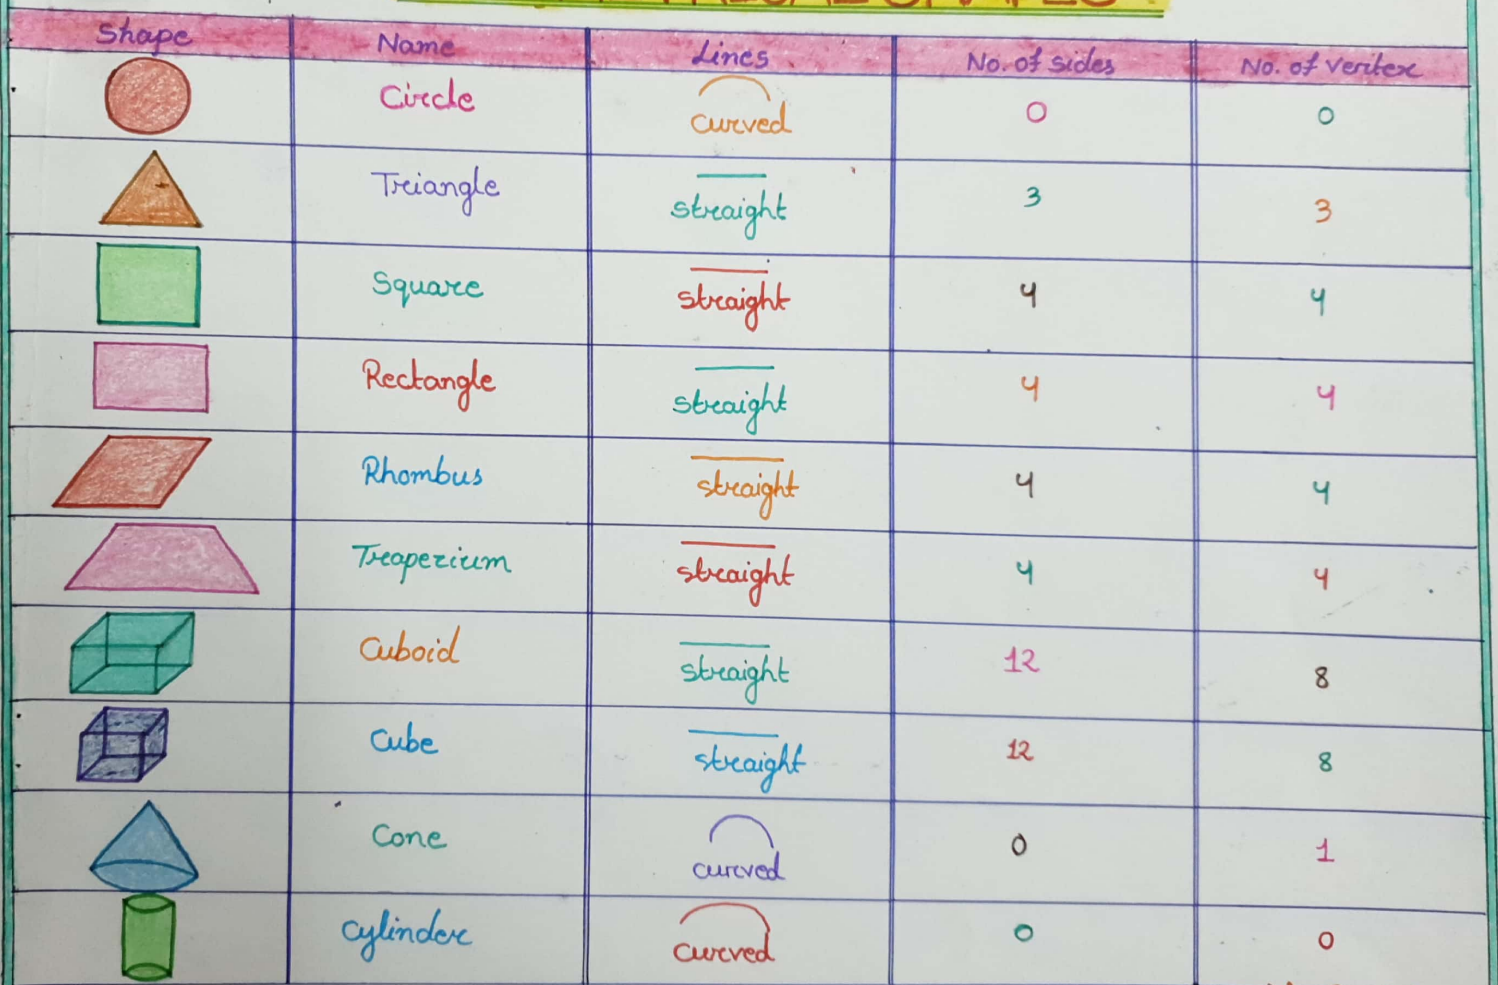 Shape Name Lines No. of sides No. of vertex
Circle curved 0 0
Triangle straight 3 3
Square straight 4 4
Rectangle straight 4 4
Rhombus straight 4 4
Trapezium straight 4 4
Cuboid straight 12 8
Cube straight 12 8
Cone curved 0 1
Cylinder curved 0 0